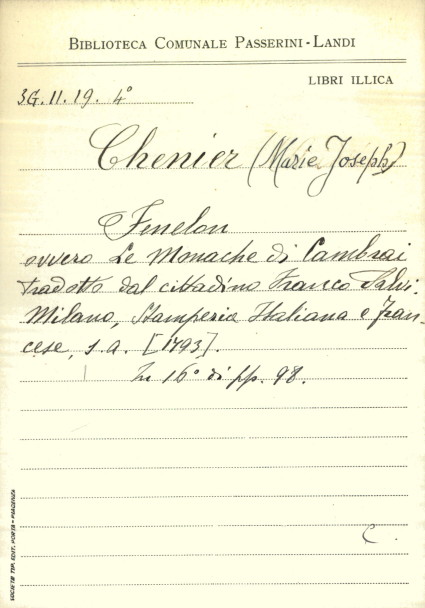 BIBLIOTECA COMUNALE PASSERINI-LANDI
LIBRI ILLICA
3G. II. 19. 4°
Chenier (Marie Joseph)
Fenelon
ovvero Le Monache di Cambrai
tradotto dal cittadino Franco Salvi.
Milano, Stamperia Italiana e Fran-
cese, s.a. [1793].
In 16° di pp. 98.
C.
SOCIETÀ TIP. EDIT. PORTA - PIACENZA